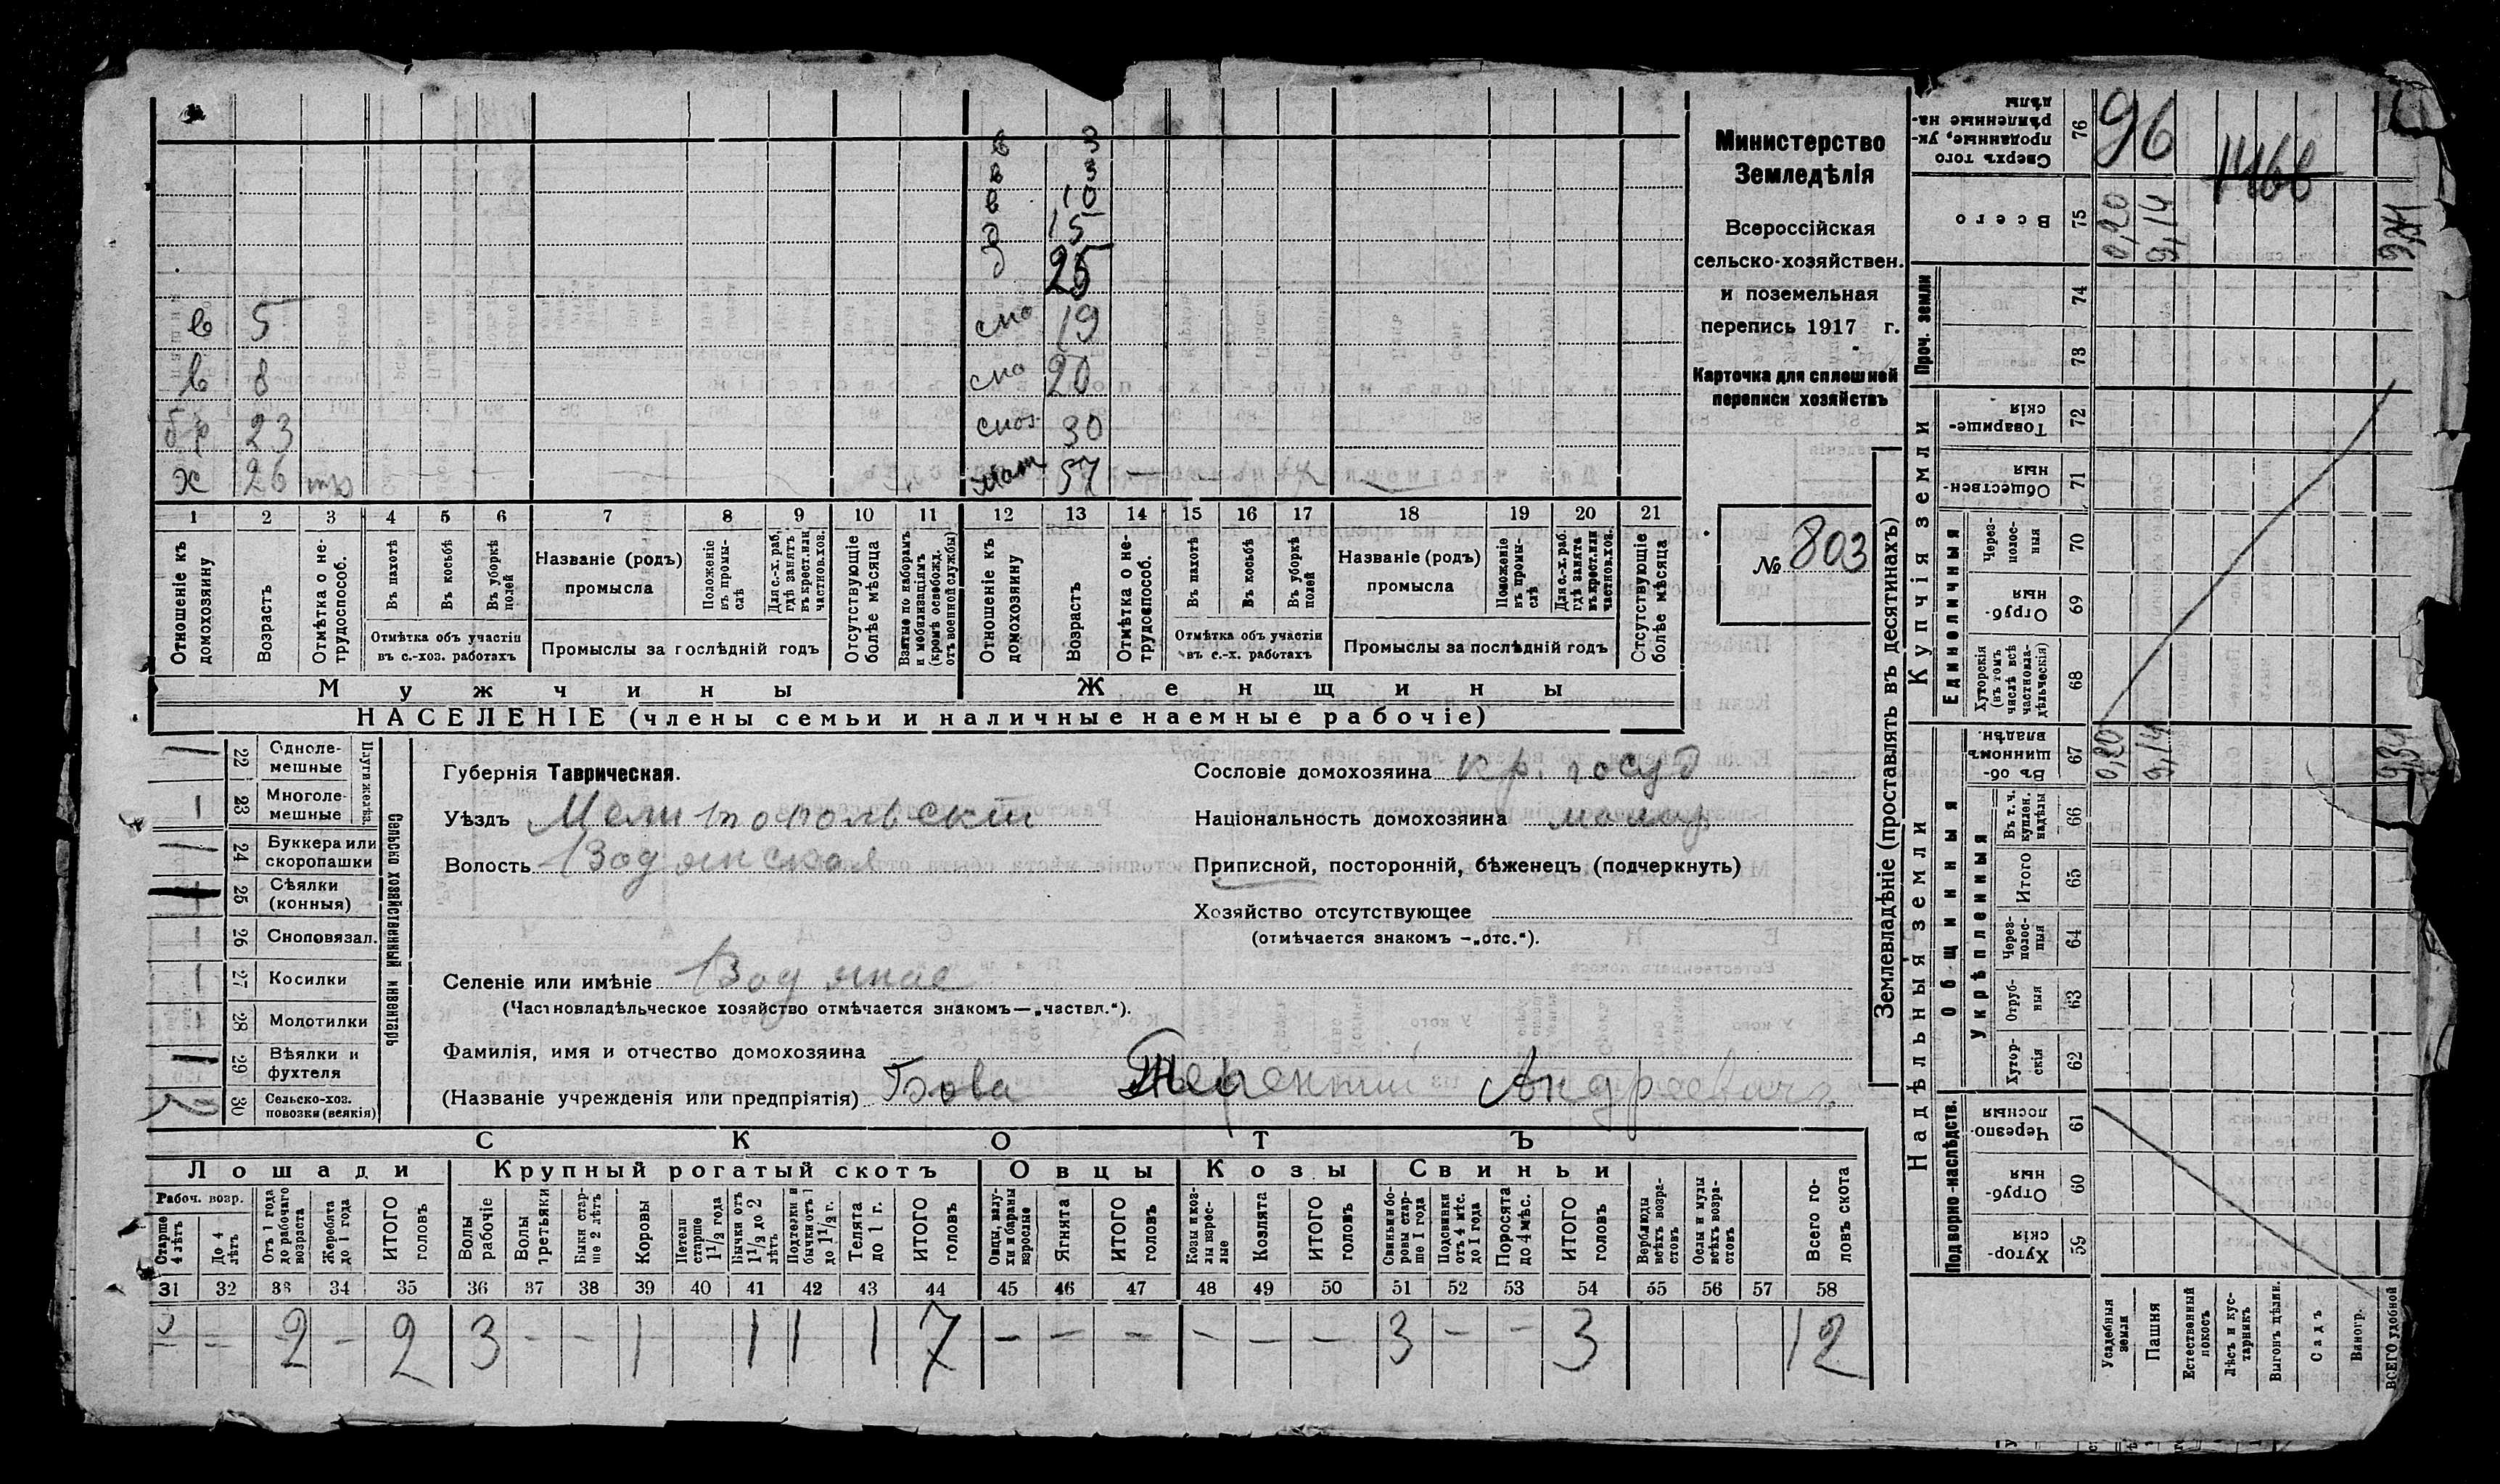 Министерство
Земледѣлія
Всероссійская
сельско-хозяйствен.
и поземельная
перепись 1917 г.
Карточка для сплошней
переписи хозяйствъ
№ 803
в 3
в 3
в 10
д 15
д 25
в 5 19
в 8 20
бр 23 30
х 26 мат 57 —
1 2 3 4 5 6 7 8 9 10 11 12 13 14 15 16 17 18 19 20 21
Отношеніе къ домохозяину
Возрастъ
Отмѣтка о не-трудоспособ.
Въ пахотѣ
Въ косьбѣ
Въ уборкѣ полей
Отмѣтка объ участіи въ с.-хоз. работахъ
Названіе (родъ) промысла
Положеніе въ промы-слѣ
Для с.-х. раб. гдѣ занятъ въ крест. или частнов. хоз.
Промыслы за послѣдній годъ
Отсутствующіе болѣе мѣсяца
Взятые по наборамъ и мобилизаціямъ (кромѣ освобожд. отъ военной службы)
Отношеніе къ домохозяину
Возрастъ
Отмѣтка о не-трудоспособ.
Въ пахотѣ
Въ косьбѣ
Въ уборкѣ полей
Отмѣтка объ участіи въ с.-х. работахъ
Названіе (родъ) промысла
Положеніе въ промы-слѣ
Для с.-х. раб. гдѣ занята въ крест. или частнов. хоз.
Промыслы за послѣдній годъ
Отсутствующіе болѣе мѣсяца
Мужчины Женщины
НАСЕЛЕНІЕ (члены семьи и наличные наемные рабочіе)
Сельско хозяйственный инвентарь
Плуги желѣз.
22 Одноле-мешные
23 Многоле-мешные
24 Буккера или скоропашки
25 Сѣялки (конныя)
26 Сноповязал.
27 Косилки
28 Молотилки
29 Вѣялки и фухтеля
30 Сельско-хоз. повозки (всякія)
Губернія Таврическая.
Уѣздъ Мелитопольскій
Волость Водянская
Селеніе или имѣніе Водяное
(Частновладѣльческое хозяйство отмѣчается знакомъ—„частвл.“).
Фамилія, имя и отчество домохозяина
(Названіе учрежденія или предпріятія) Бова Терентий Андреевич
Сословіе домохозяина кр. госуд
Національность домохозяина малор
Приписной, посторонній, бѣженецъ (подчеркнуть)
Хозяйство отсутствующее
(отмѣчается знакомъ —„отс.“).
СКОТЪ
Лошади Крупный рогатый скотъ Овцы Козы Свиньи
Рабоч. возр.
Старше 4 лѣтъ
До 4 лѣтъ
Отъ 1 года до рабочаго возраста
Жеребята до 1 года
ИТОГО головъ
Волы рабочіе
Волы третьяки
Быки стар-ше 2 лѣтъ
Коровы
Нетели старше 1 1/2 года
Бычки отъ 1 1/2 до 2 лѣтъ
Подтелки и бычки отъ 1 до 1 1/2 г.
Телята до 1 г.
ИТОГО головъ
Овцы, валу-хи и бараны взрослые
Ягнята
ИТОГО головъ
Козы и коз-лы взрос-лые
Козлята
ИТОГО головъ
Свиньи и бо-ровы стар-ше 1 года
Подсвинки отъ 4 мѣс. до 1 года
Поросята до 4 мѣс.
ИТОГО головъ
Верблюды всѣхъ возра-стовъ
Ослы и мулы всѣхъ возра-стовъ
Всего го-ловъ скота
31 32 33 34 35 36 37 38 39 40 41 42 43 44 45 46 47 48 49 50 51 52 53 54 55 56 57 58
– – 2 – 2 3 – – 1 1 1 1 7 – – – – – – 3 – – 3 12
Землевладѣніе (проставлять въ десятинахъ)
Надѣльныя земли Купчія земли Проч. земли
Подворно-наслѣдств.
Общинныя
Укрѣпленныя
Единоличныя
59 Хутор-скія
60 Отруб-ныя
61 Черезпо-лосныя
62 Хутор-скія
63 Отруб-ныя
64 Через-полос-ныя
65 Итого
66 Въ т. ч. куплен. надѣлы
67 Въ об-щинномъ владѣн.
68 Хуторскія (въ томъ числѣ всѣ частновла-дѣльческія)
69 Отруб-ныя
70 Через-полос-ныя
71 Обществен-ныя
72 Товарище-скія
73
74
75 Всего
76 Сверхъ того проданные, ук-рѣпленные на-дѣлы
Усадебныя земли
Пашня
Естественный покосъ
Лѣсъ и кус-тарникъ
Выгонъ цѣлин.
Садъ
Виногр.
ВСЕГО удобной
0,20 9,14
0,20 9,14
96